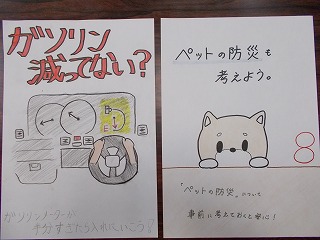 ガソリン
減ってない?
E
ガソリンメーターが
半分すぎたら入れにいこう!
ペットの防災も
考えよう。
8
「ペットの防災」について
事前に考えておくと安心!